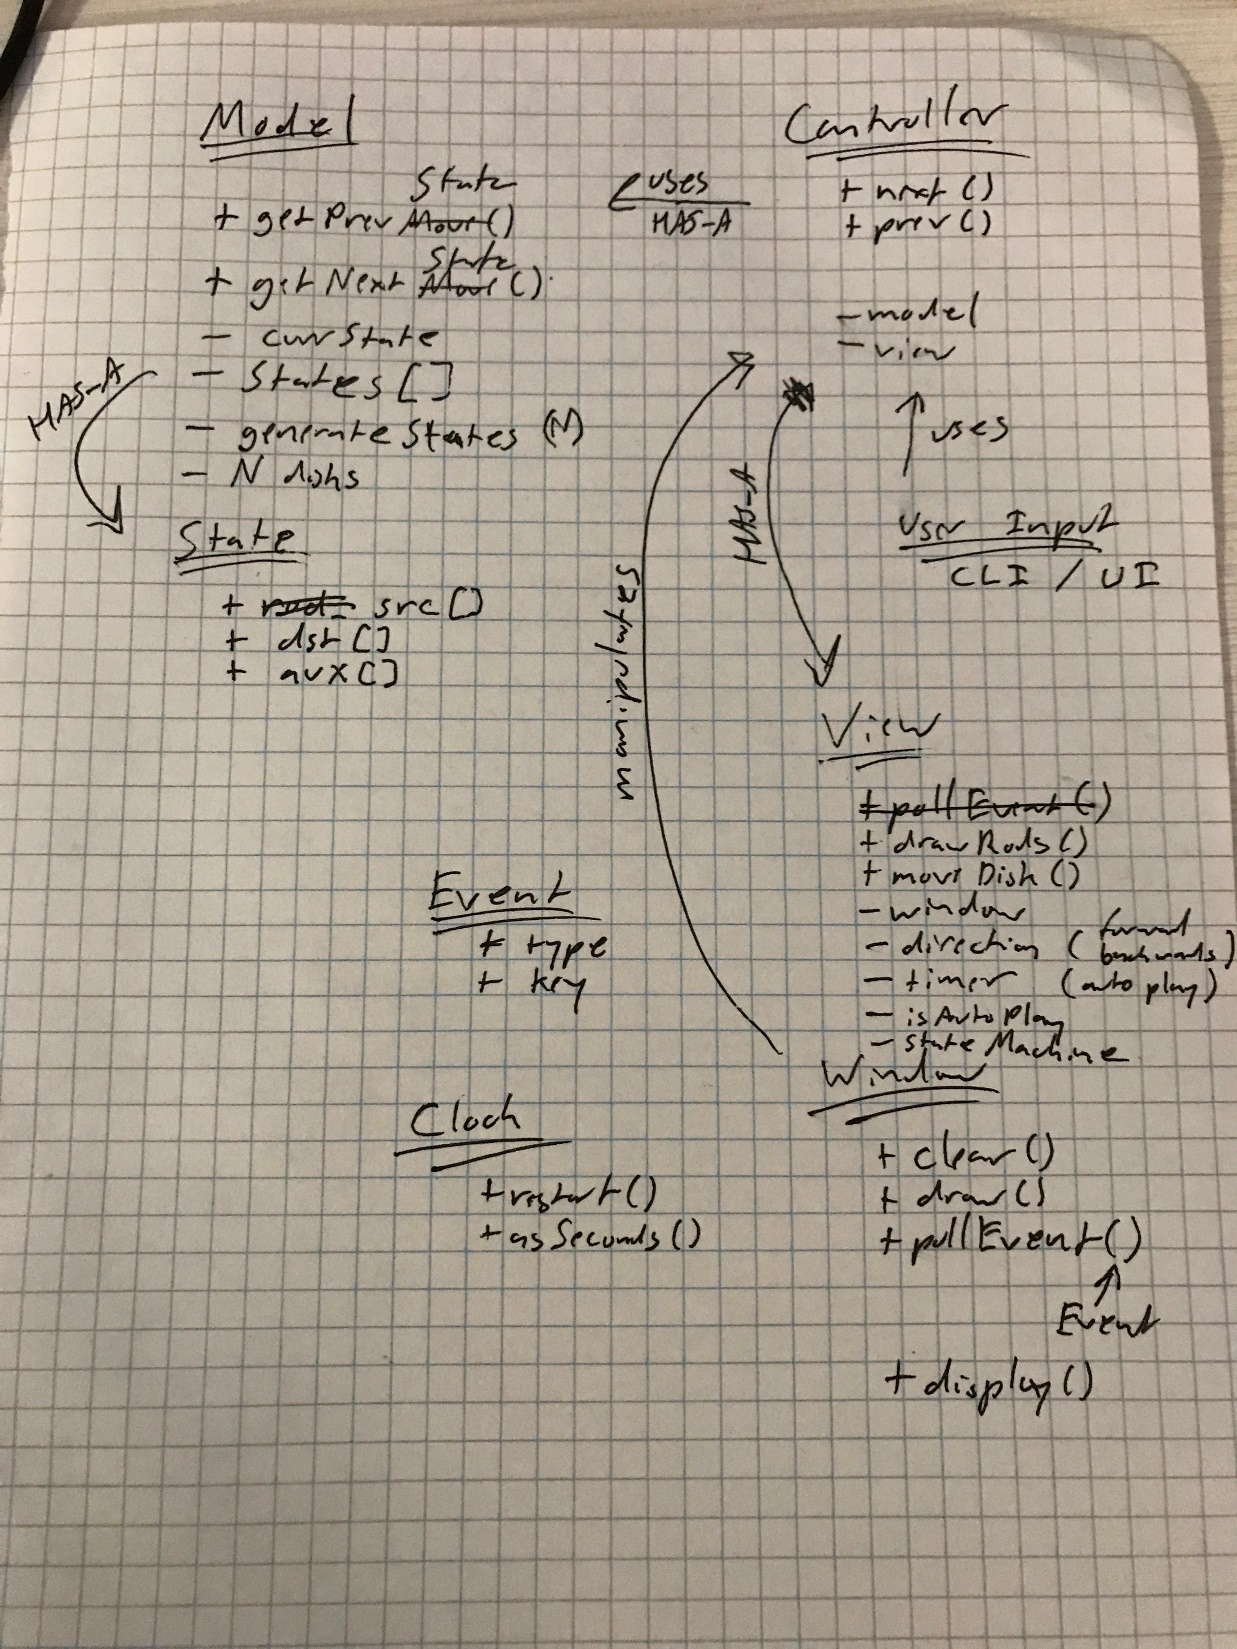 Model
State
+ getPrev Move()
State
+ getNext Move()
- currState
- States []
- generateStates (N)
- N disks
HAS-A
State
+ src []
+ dst []
+ aux []
uses
HAS-A
Controller
+ next ()
+ prev ()
- model
- view
uses
User Input
CLI / UI
HAS-A
manipulates
View
+ pollEvent ()
+ drawRods ()
+ moveDisk ()
- window
- direction (forward
backwards)
- timer (auto play)
- isAutoPlay
- stateMachine
Event
+ type
+ key
Clock
+ restart ()
+ asSeconds ()
Window
+ clear ()
+ draw ()
+ pollEvent ()
Event
+ display ()